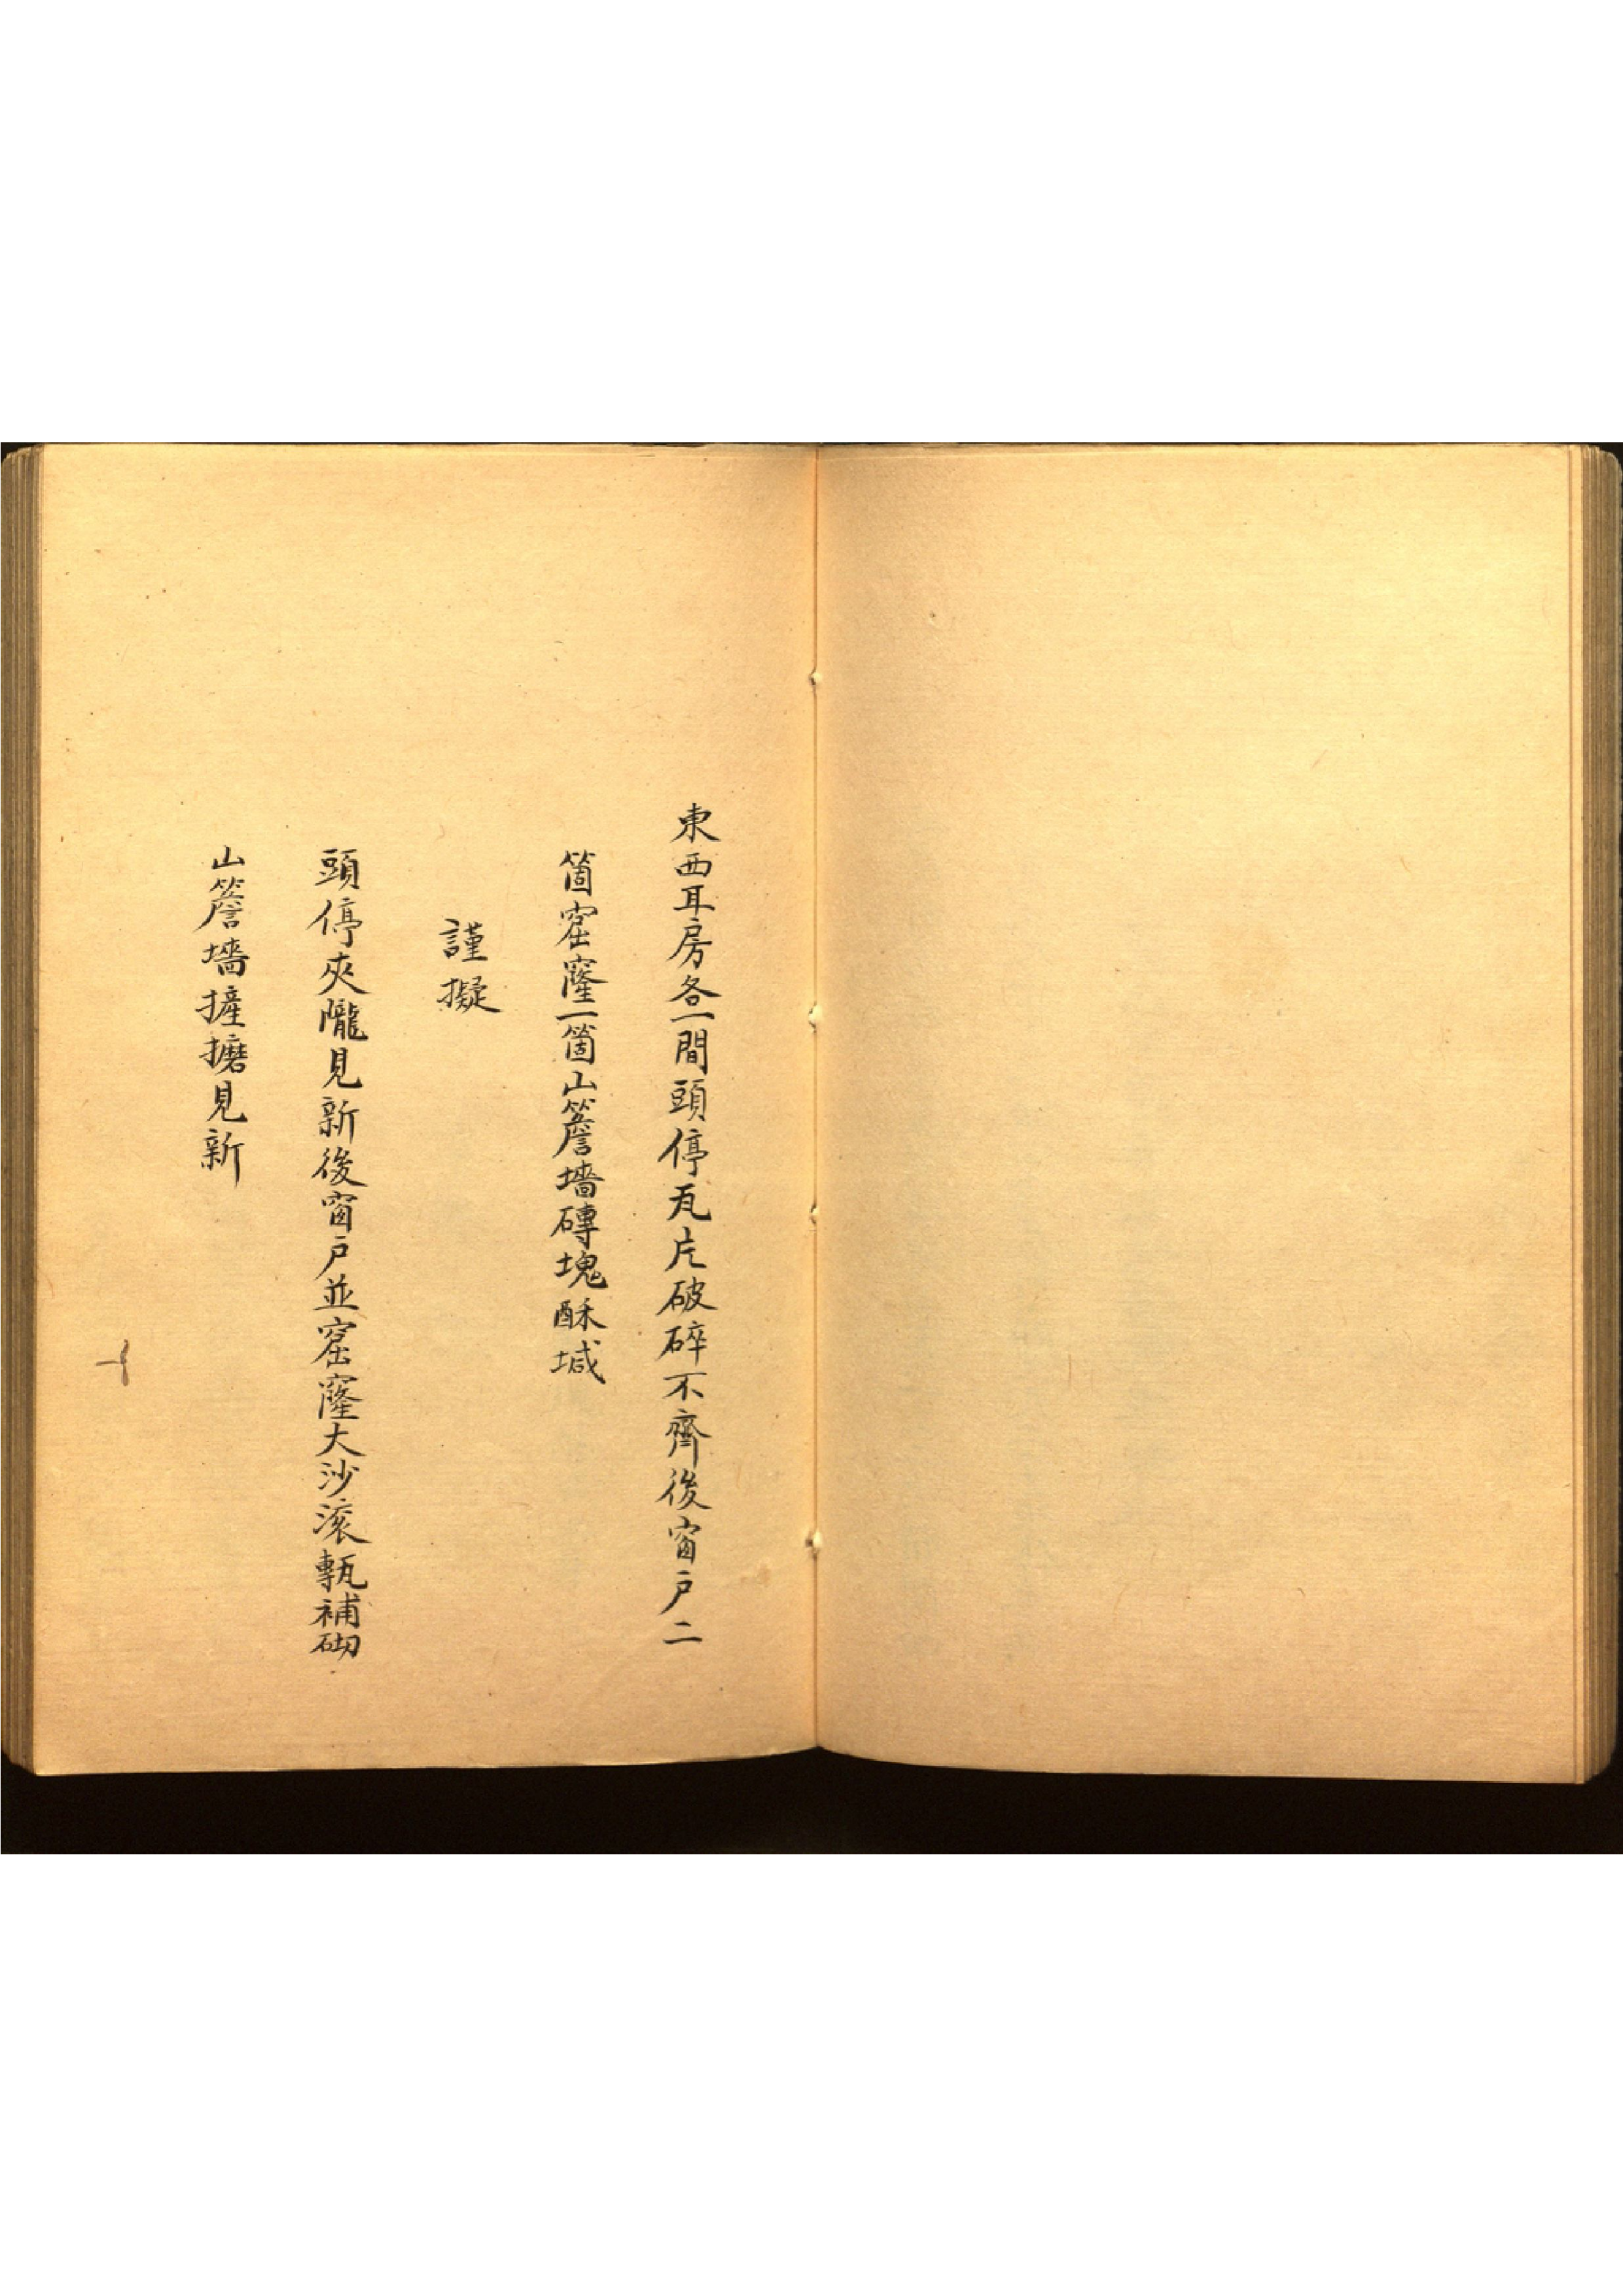 東西耳房各一間頭停瓦片破碎不齊後窗户二
箇窟窿一箇山簷墻磚塊酥堿
謹擬
頭停夾隴見新後窗户並窟窿大沙滚甎補砌
山簷墻摌磨見新